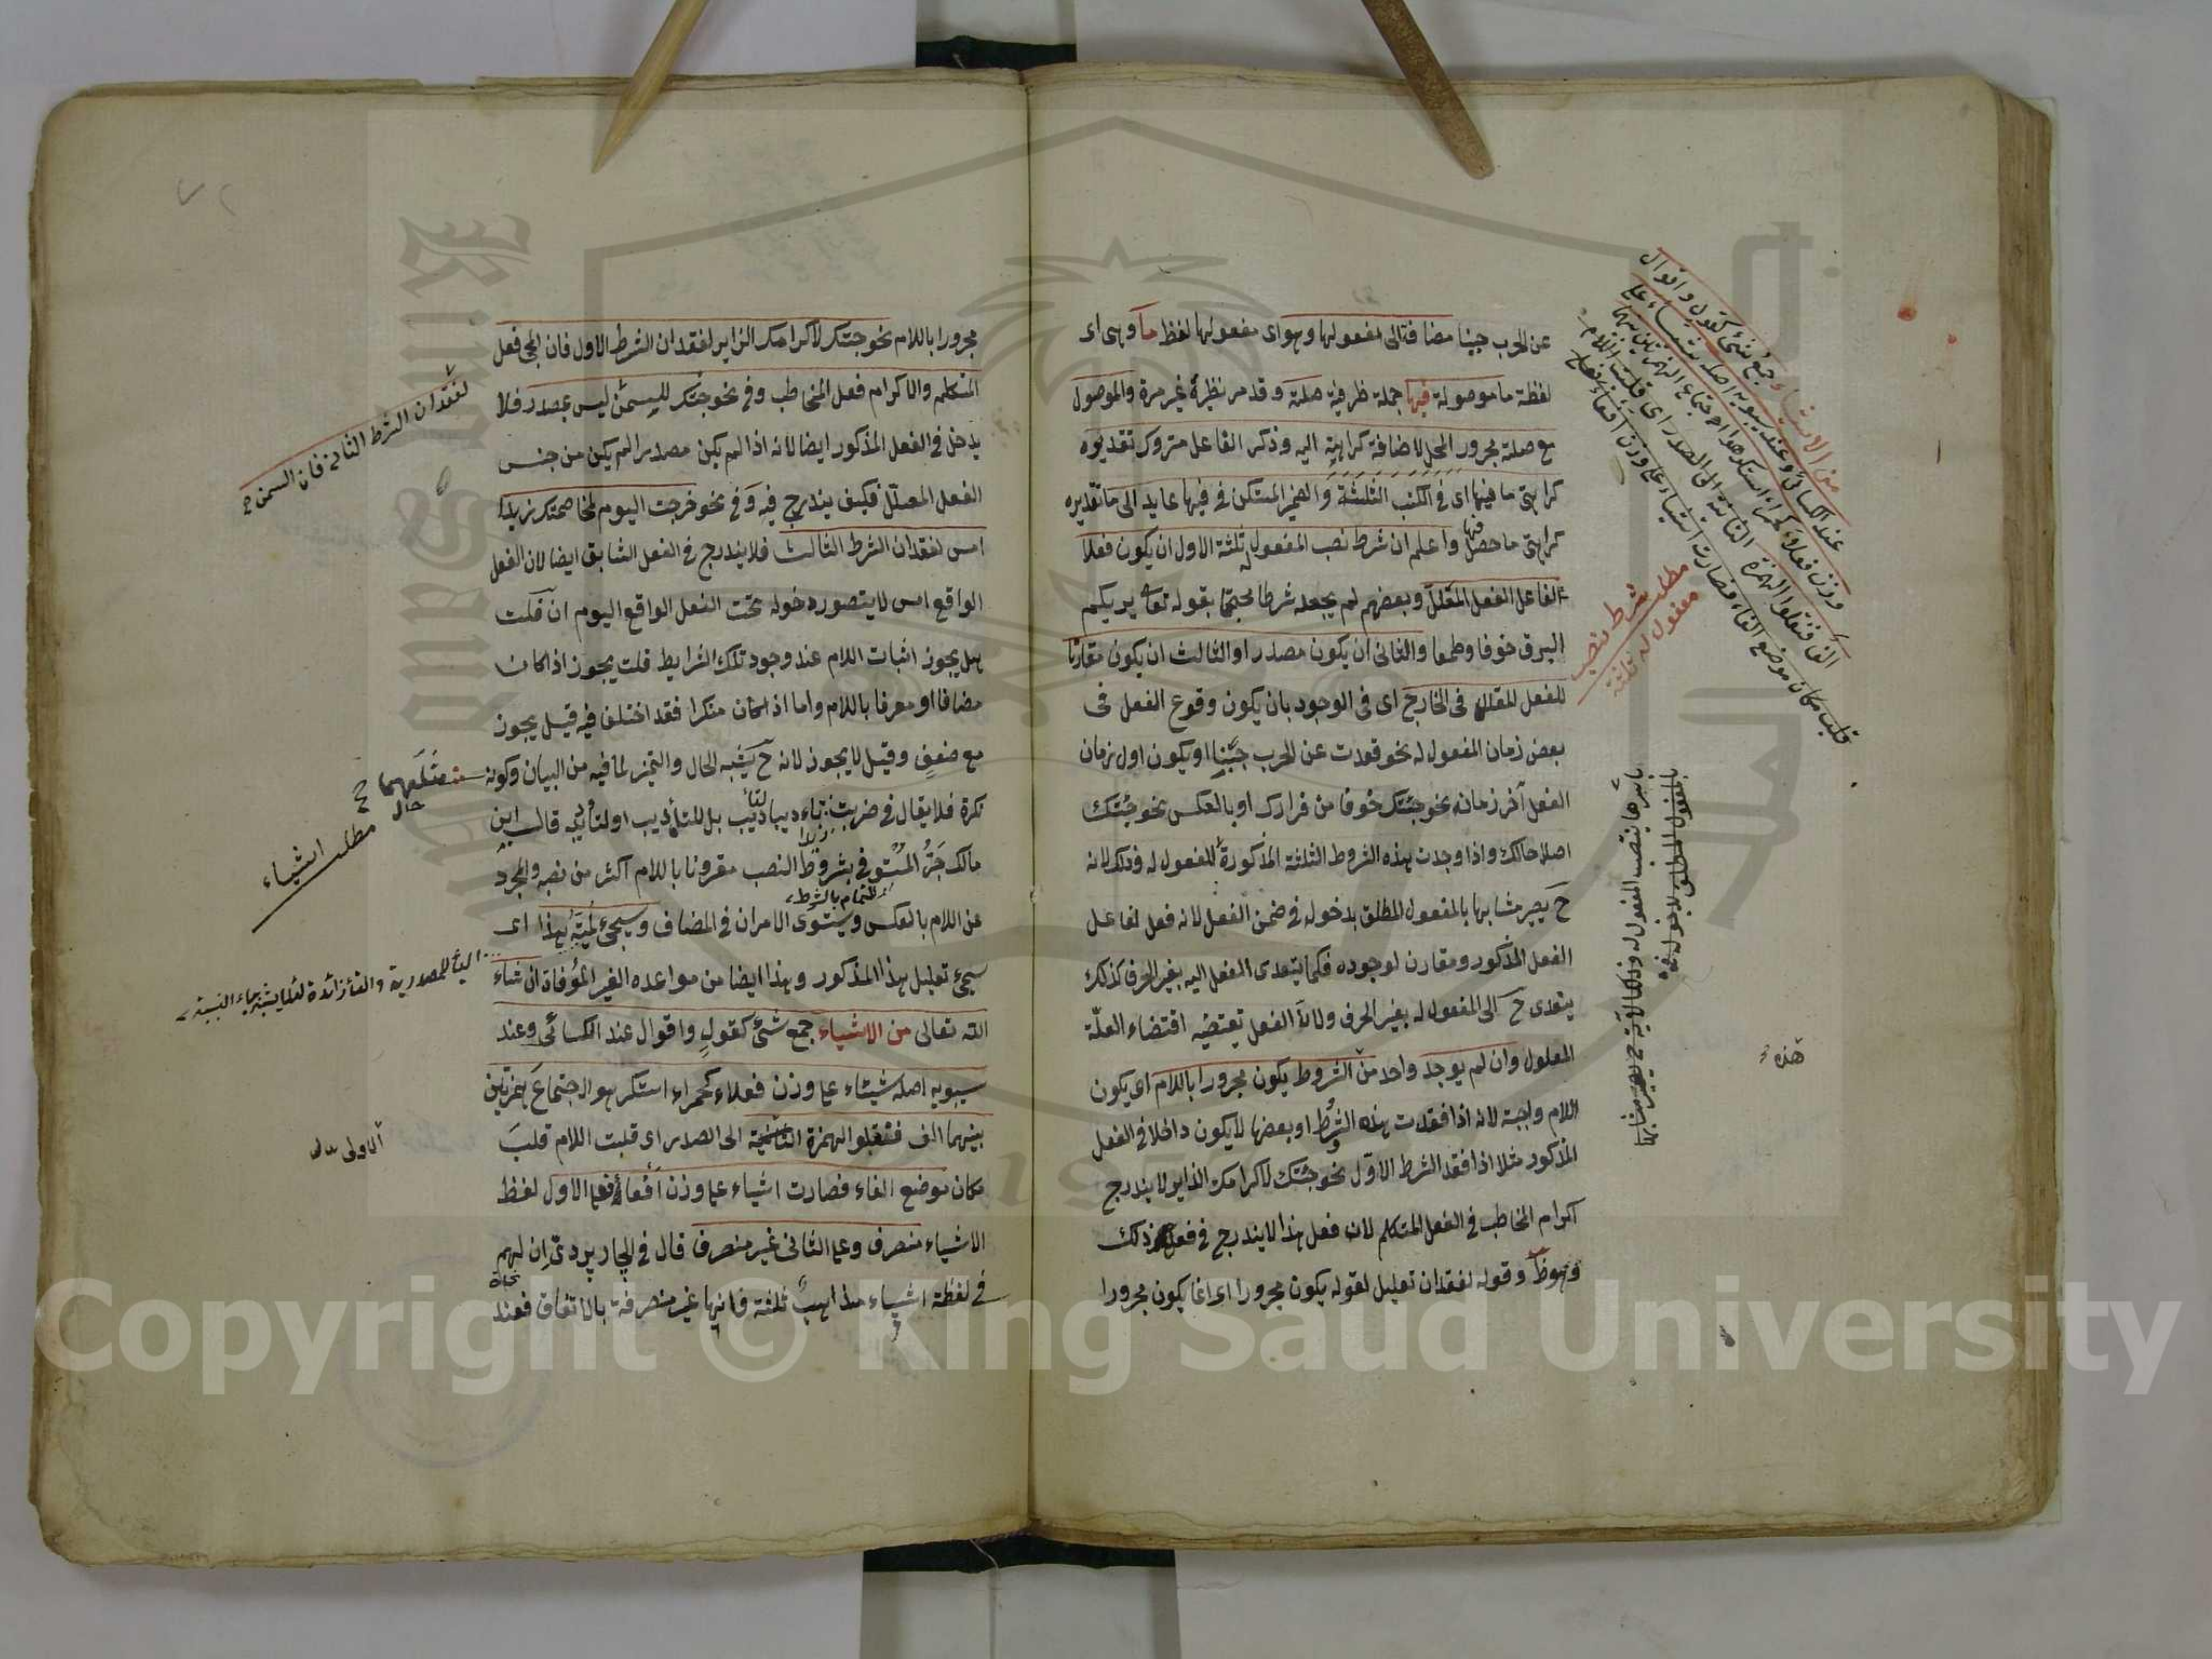 عن الحرب جبنا مضافة الى مفعولها وهو اى مفعولها لفظ ما وهى اى
لفظة ما موصولة فيها جملة ظرفية صلته وقد مر نظيره غير مرة والموصول
مع صلته مجرور المحل لاضافة كراهية اليه وذكر الفاعل متروك تقديره
كراهتى ما فيها اى فى الكتب الثلثة والضمير المستكن فى فيها عايد الى ما تقديره
كراهتى ما حصل فيها واعلم ان شرط نصب المفعول له ثلثة الاول ان يكون فعلا
لفاعل الفعل المعلل وبعضهم لم يجعله شرطا محتجا بقوله تعا يريكم
البرق خوفا وطمعا والثانى ان يكون مصدرا والثالث ان يكون مقارنا
للفعل المعلل فى الخارج اى فى الوجود بان يكون وقوع الفعل فى
بعض زمان المفعول له نحو قعدت عن الحرب جبنا او يكون اول زمان
الفعل آخر زمانه نحو جئتك خوفا من فرارك او بالعكس نحو جئتك
اصلاحا لك واذا وجدت هذه الشروط الثلثة المذكورة للمفعول له وذلك لانه
ح يصير مشابها بالمفعول المطلق بدخوله فى ضمن الفعل لانه فعل لفاعل
الفعل المذكور ومقارن لوجوده فكما يتعدى الفعل اليه بغير الحرف كذلك
يتعدى ح الى المفعول له بغير الحرف ولان الفعل تقتضيه اقتضاء العلة
المعلول وان لم يوجد واحد من الشروط يكون مجرورا باللام اى يكون
اللام واجبة لانه اذا فقدت هذه الشروط او بعضها لا يكون داخلا فى الفعل
المذكور مثلا اذا فقد الشرط الاول نحو جئتك لاكرامك الزاير لا يندرج
اكرام المخاطب فى الفعل المتكلم لان فعل هذا لا يندرج فى فعل ذلك
وهو ظ وقوله لفقدان تعليل لقوله يكون مجرورا اى انما يكون مجرورا
من الاشياء جمع شئ كقول واقوال
عند الكسائى وعند سيبويه اصله شيئاء على
وزن فعلاء كحمراء استكرهوا اجتماع الهمزتين بينهما
الف فنقلوا الهمزة الثانية الى الصدر اى قلبت اللام
قلب مكان موضع الفاء فصارت اشياء على وزن افعاء
مطلب شرط نصب
مفعول له ثلثة
بالمفعول المطلق لدخوله
هذه
مجرورا باللام نحو جئتك لاكرامك الزاير لفقدان الشرط الاول فان المجئ فعل
المتكلم والاكرام فعل المخاطب وفى نحو جئتك للسمن ليس بمصدر فلا
يدخل فى الفعل المذكور ايضا لانه اذا لم يكن مصدرا لم يكن من جنس
الفعل المعلل فكيف يندرج فيه وفى نحو خرجت اليوم لمخاصمتك زيدا
امس لفقدان الشرط الثالث فلا يندرج فى الفعل السابق ايضا لان الفعل
الواقع امس لا يتصور دخوله تحت الفعل الواقع اليوم ان قلت
هل يجوز اثبات اللام عند وجود تلك الشرايط قلت يجوز اذا كان
مضافا او معرفا باللام واما اذا كان منكرا فقد اختلف فيه قيل يجوز
مع ضعف وقيل لا يجوز لانه ح يشبه الحال والتميز لما فيه من البيان وكونه
نكرة فلا يقال فى ضربت زيدا تأديبا لتأديب بل للتأديب او لتأديبه قال ابن
مالك جر المستوفى بشروط النصب مقرونا باللام اكثر من نصبه والمجرد
عن اللام بالعكس ويستوى الامران فى المضاف وسيجئ لمية هذا اى
سيجئ تعليل هذا المذكور وهذا ايضا من مواعده الغير الموفاة ان شاء
الله تعالى من الاشياء جمع شئ كقول واقوال عند الكسائى وعند
سيبويه اصله شيئاء على وزن فعلاء كحمراء استكرهوا اجتماع همزتين
بينهما الف فنقلوا الهمزة الثانية الى الصدر اى قلبت اللام قلب
مكان موضع الفاء فصارت اشياء على وزن افعاء فعلى الاول لفظ
الاشياء منصرف وعلى الثانى غير منصرف قال فى الجاربردى ان لهم
فى لفظة اشياء مذاهب ثلثة فانها غير منصرفة بالاتفاق فعند
لفقدان الشرط الثانى فان السمن
مطلب اشياء
الياء المصدرية والتاء زائدة لئلا يشتبه بياء النسبة
الاولى
Copyright © King Saud University
King Saud University
1957